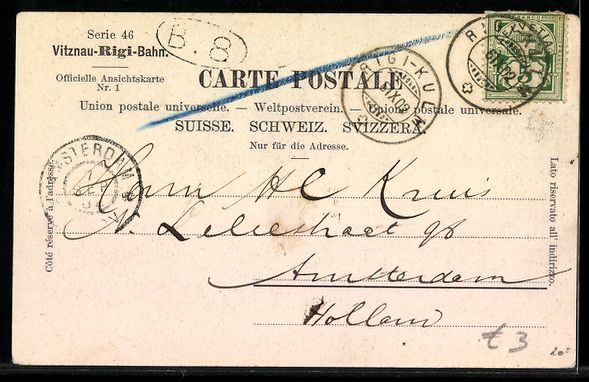 Serie 46
Vitznau-Rigi-Bahn.
Officielle Ansichtskarte
Nr. 1
B. 8
CARTE POSTALE
Union postale universelle. — Weltpostverein. — Unione postale universale.
SUISSE. SCHWEIZ. SVIZZERA.
Nur für die Adresse.
RIGI-KULM
AMSTERDAM
Côté réservé à l'adresse.
Lato riservato all' indirizzo.
HC Kruis
98
Amsterdam
Holland
t 3